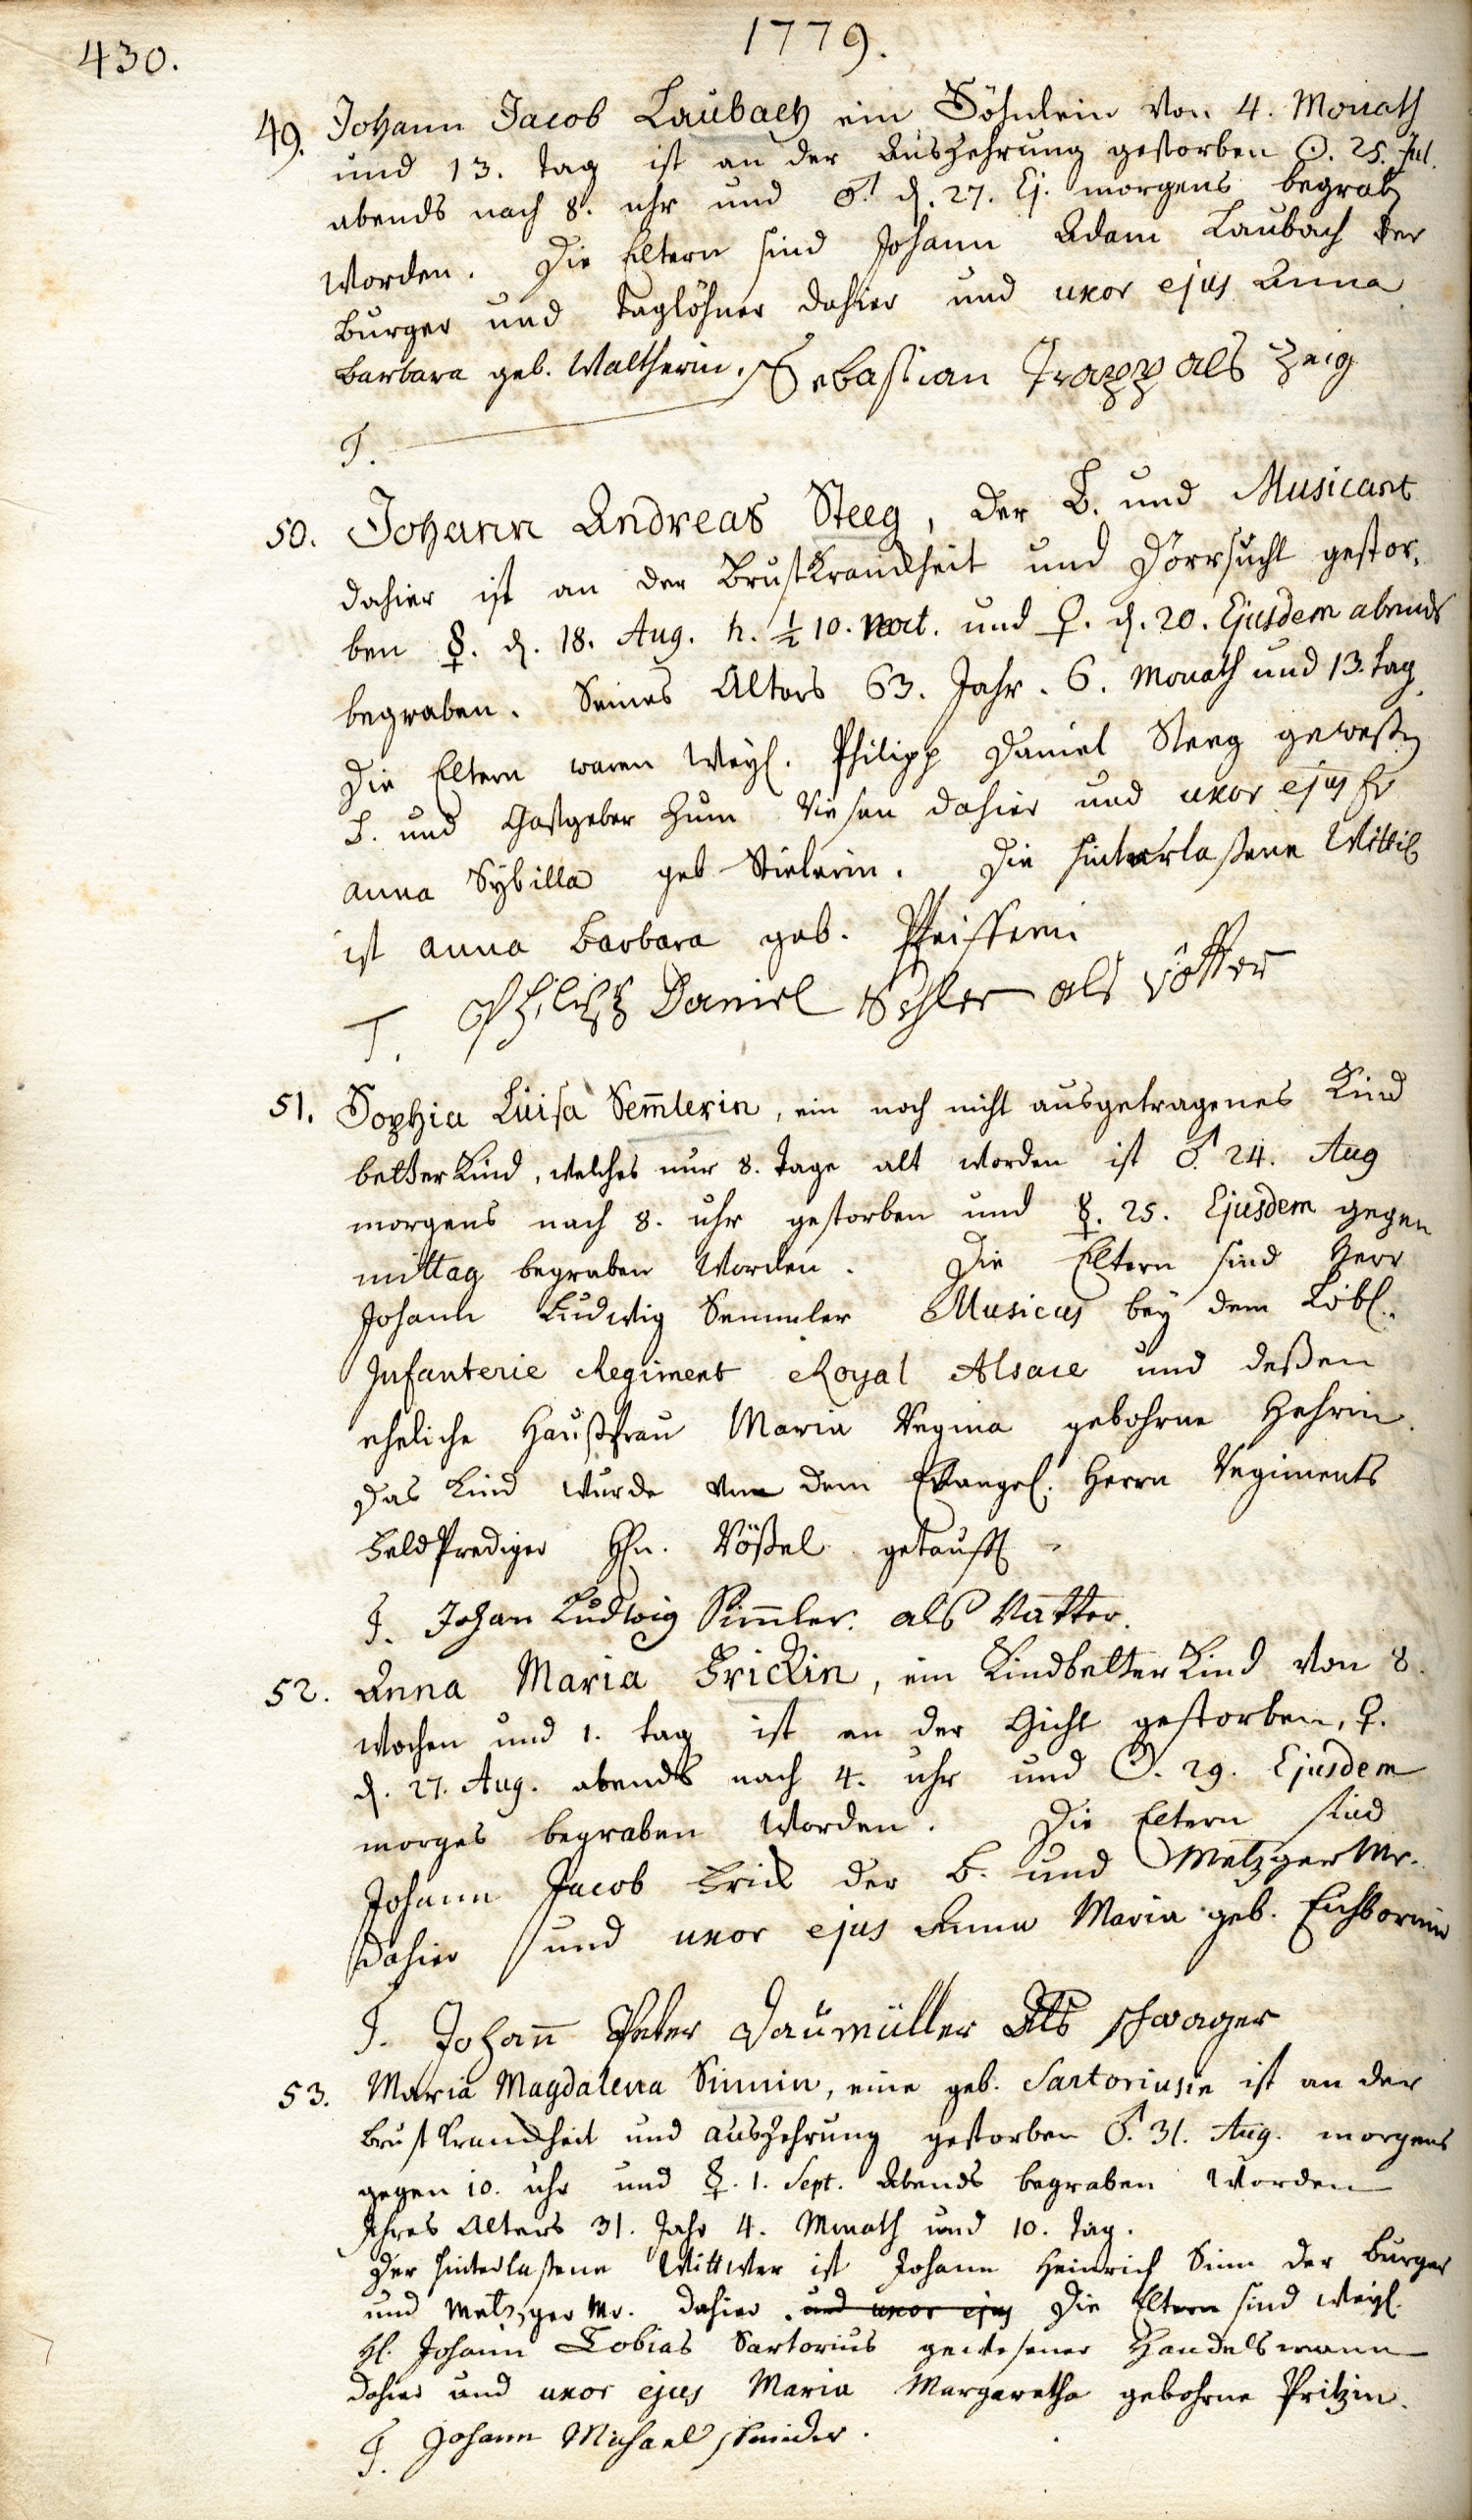 430.
1779.
49. Johann Jacob Laubach ein Söhnlein von 4. Monath
und 13. tag ist an der Auszehrung gestorben ☉. 25. Jul.
abends nach 8. uhr und ♂. d. 27. Ej. morgens begrab
worden. Die Eltern sind Johann Adam Laubach der
Burger und Taglöhner dahier und uxor ejus Anna
Barbara geb. Waltherin. Sebastian Trapp als Zeig
T.
50. Johann Andreas Steeg, der B. und Musicant
dahier ist an der Brustkranckheit und Dörrsucht gestor,
ben ☿. d. 18. Aug. h. ½ 10. noct. und ♀. d. 20. Ejusdem abends
begraben. Seines Alters 63. Jahr. 6. Monath und 13. tag.
Die Eltern waren Weyl. Philipp Daniel Steeg
B. und Gastgeber zum Riesen dahier und uxor ejus Fr
Anna Sybilla geb Stielerin. Die hinterlaßene Wittib
ist Anna Barbara geb. Pfeifferin
T. Philipp Daniel als
51. Sophia Luisa Sem̄lerin, ein noch nicht ausgetragenes Kind
better Kind, welches nur 8. Tage alt worden ist ♂. 24. Aug
morgens nach 8. uhr gestorben und ☿. 25. Ejusdem gegen
mittag begraben worden. Die Eltern sind Herr
Johann Ludwig Semmler Musicus bey dem Löbl.
Infanterie Regiment Royal Alsace und deßen
eheliche Haußfrau Maria Regina gebohrne Zehrin.
Das Kind wurde von dem Evangel. Herrn Regiments
Feld Prediger Hn. Rößel getaufft
T. Johan Ludwig Sim̄ler als Vatter.
52. Anna Maria Frickin, ein Kindbetter Kind von 8.
Wochen und 1. tag ist an der Gicht gestorben, ♀.
d. 27. Aug. abends nach 4. uhr und ☉. 29. Ejusdem
morges begraben worden. Die Eltern sind
Johann Jacob Frick der B. und Metzger Mr.
dahier und uxor ejus Anna Maria geb. Eichbornin
T. Johan̄ Peter Daumüller Als schwager
53. Maria Magdalena Sinnin, eine geb. Sartoriusin ist an der
Brustkranckheit und auszehrung gestorben ♂. 31. Aug. morgens
gegen 10. uhr und ☿. 1. Sept. Abends begraben worden
Ihres Alters 31. Jahr 4. Monath und 10. Tag.
Der hinterlaßene Wittwer ist Johann Heinrich Sinn der Burger
und Metzger Mr. dahier. und uxor ejus Die Eltern sind Weyl.
H. Johann Tobias Sartorius gewesener Handelsmann
dahier und uxor ejus Maria Margaretha gebohrne Pritzin.
T. Johann Michael